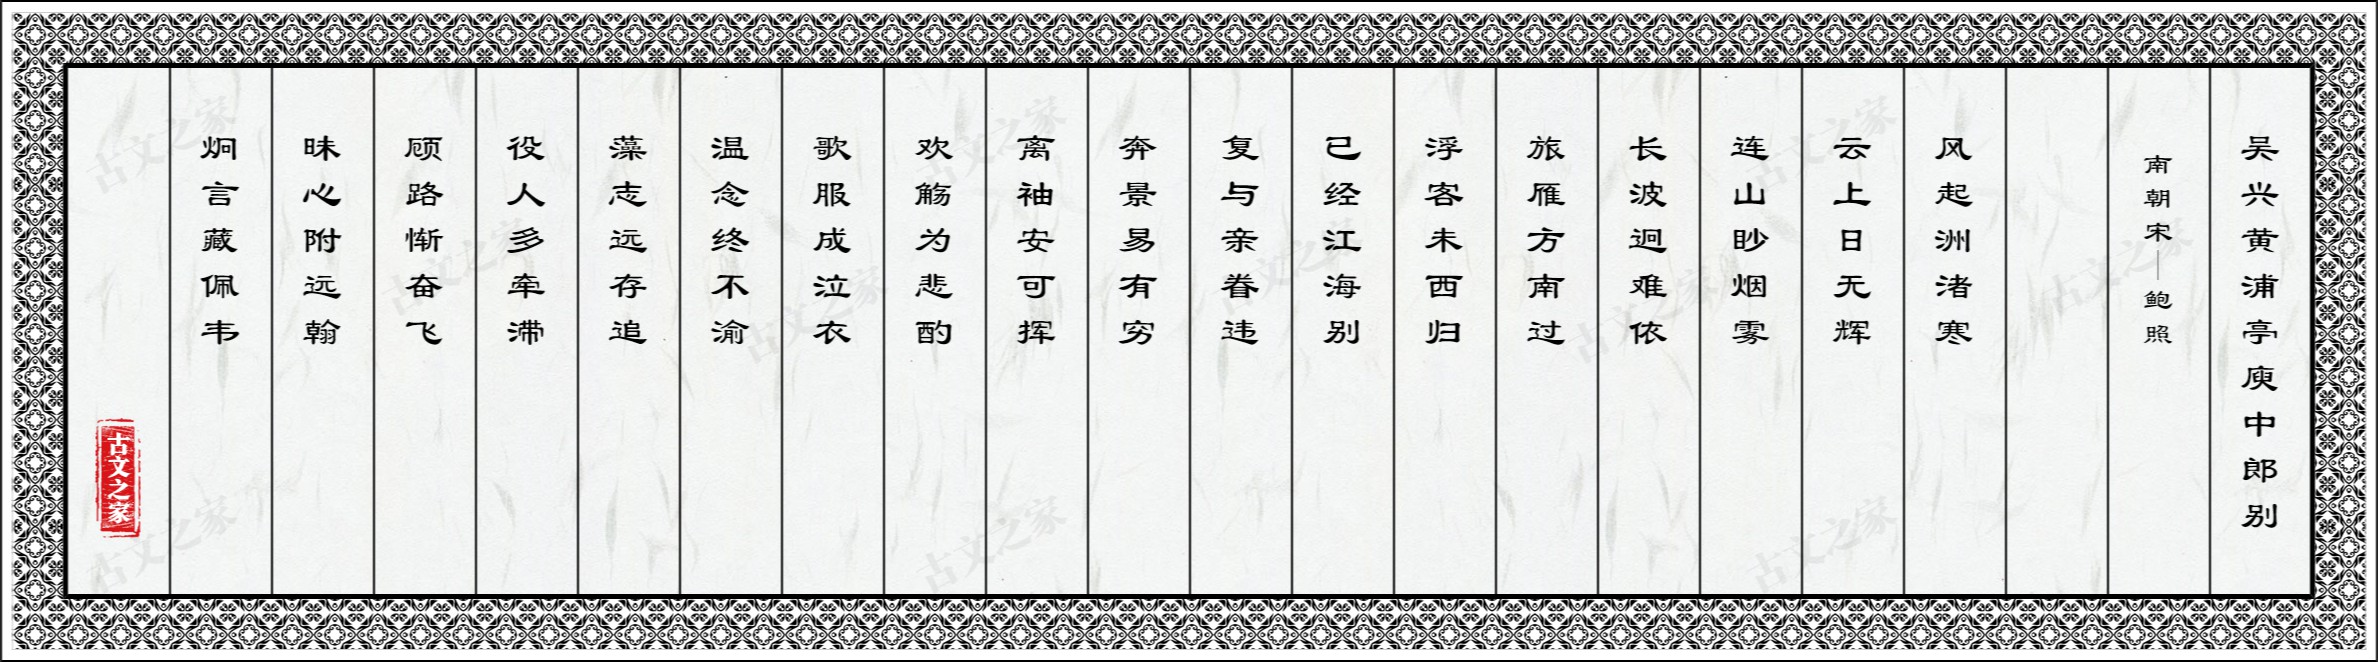 吴兴黄浦亭庾中郎别
南朝宋—鲍照
风起洲渚寒
云上日无辉
连山眇烟雾
长波迥难依
旅雁方南过
浮客未西归
已经江海别
复与亲眷违
奔景易有穷
离袖安可挥
欢觞为悲酌
歌服成泣衣
温念终不渝
藻志远存追
役人多牵滞
顾路惭奋飞
昧心附远翰
炯言藏佩韦
古文之家